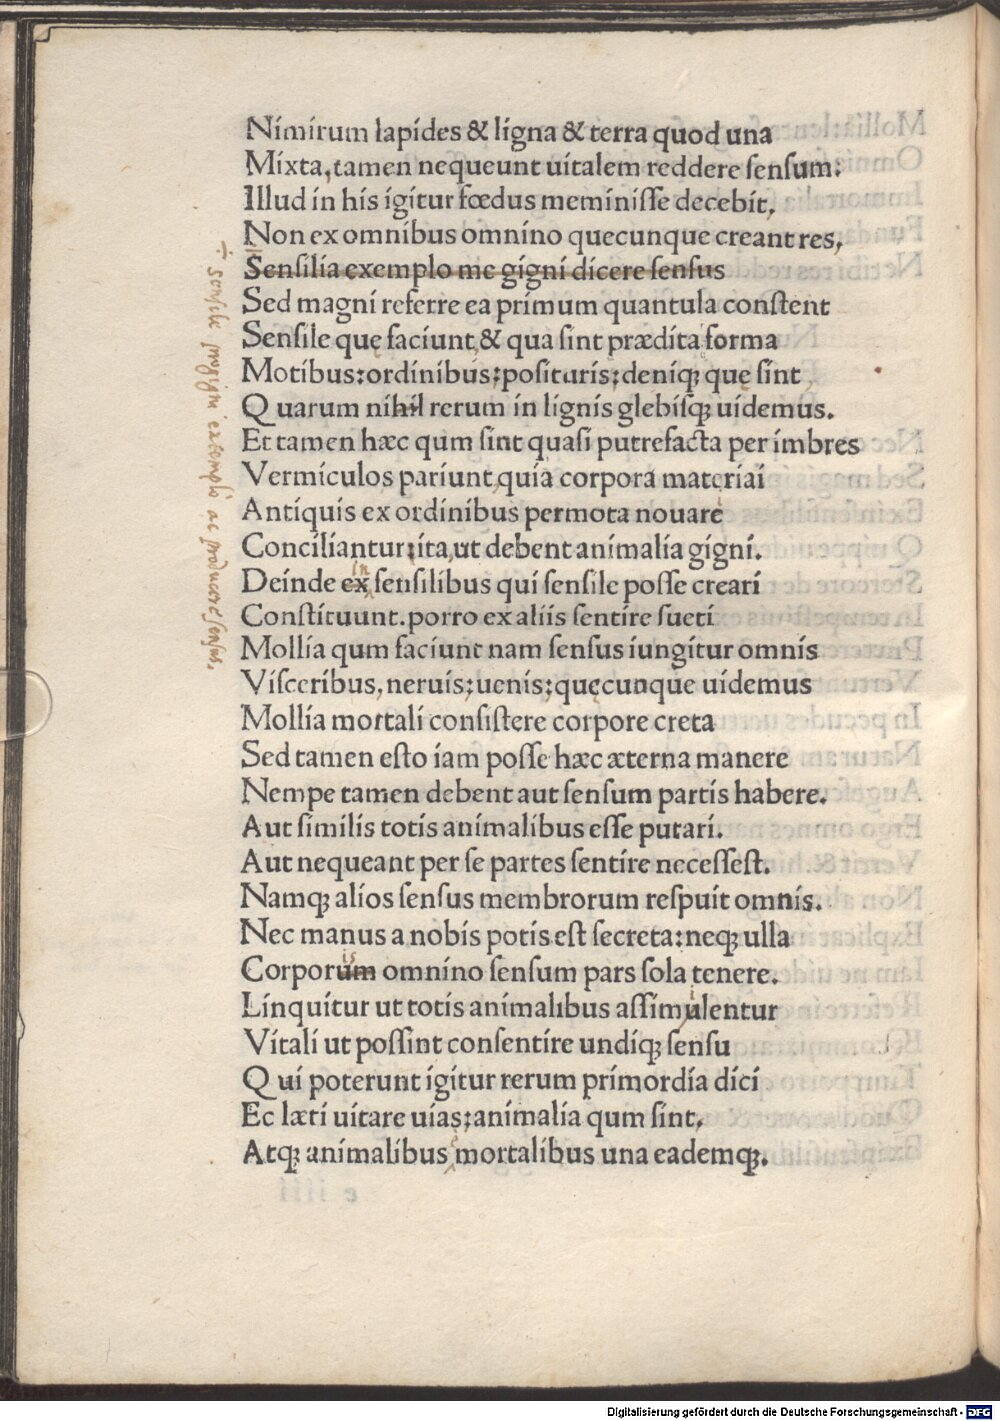 Nimirum lapides & ligna & terra quod una
Mixta, tamen nequeunt uitalem reddere sensum.
Illud in his igitur fœdus meminisse decebit,
Non ex omnibus omnino quecunque creant res,
Sensilia exemplo me gigni dicere sensus
Sed magni referre ea primum quantula constent
Sensile que faciunt, & qua sint prædita forma
Motibus: ordinibus: posituris: deniqꝫ que sint
Quarum nihil rerum in lignis glebisqꝫ uidemus.
Et tamen hæc qum sint quasi putrefacta per imbres
Vermiculos pariunt, quia corpora materiai
Antiquis ex ordinibus permota nouare
Conciliantur: ita, ut debent animalia gigni.
in
Deinde ex sensilibus qui sensile posse creari
Constituunt. porro ex aliis sentire sueti
Mollia qum faciunt nam sensus iungitur omnis
Visceribus, neruis: uenis: quęcunque uidemus
Mollia mortali consistere corpore creta
Sed tamen esto iam posse hæc æterna manere
Nempe tamen debent aut sensum partis habere.
Aut similis totis animalibus esse putari.
Aut nequeant per se partes sentire necessest.
Namqꝫ alios sensus membrorum respuit omnis.
Nec manus a nobis potis est secreta: neqꝫ ulla
is
Corporum omnino sensum pars sola tenere.
Linquitur ut totis animalibus assimulentur
Vitali ut possint consentire undiqꝫ sensu
Qui poterunt igitur rerum primordia dici
Ec læti uitare uias: animalia qum sint,
Atqꝫ animalibus mortalibus una eademqꝫ.
sensile progigni extemplo ac producere sensus.
Digitalisierung gefördert durch die Deutsche Forschungsgemeinschaft - DFG